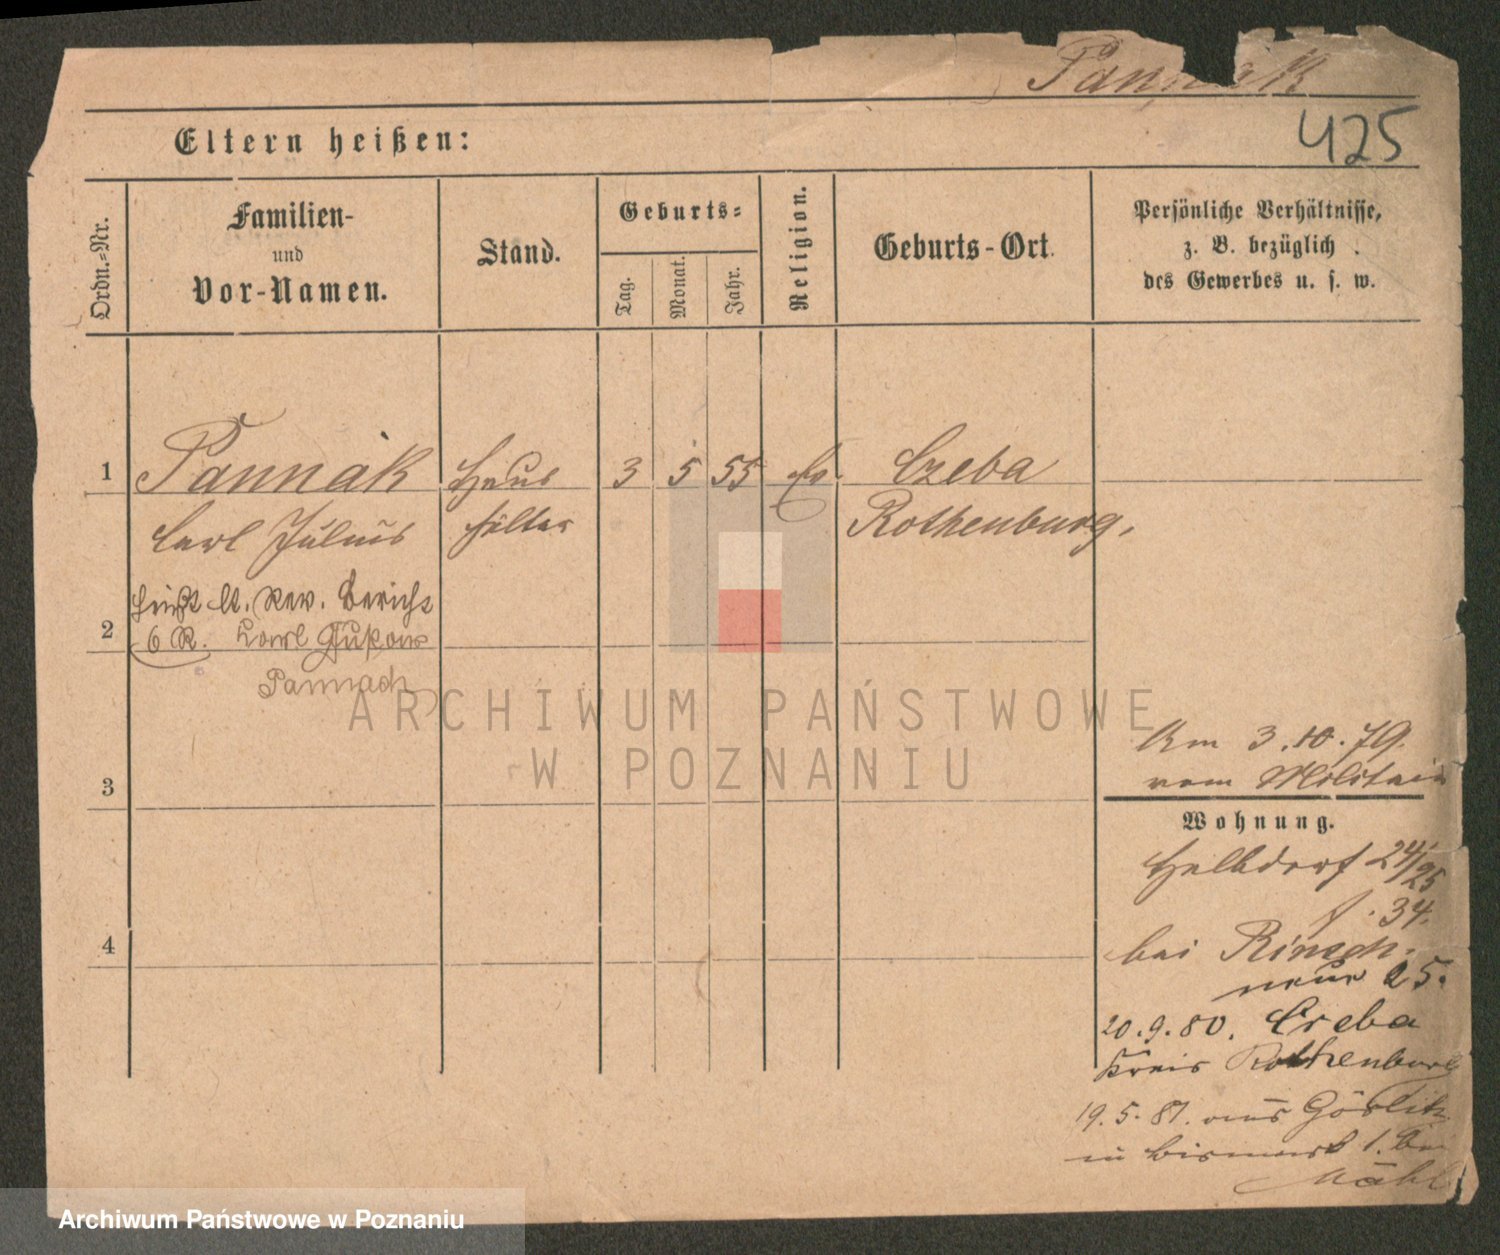 Pannak
425
Eltern heißen:
Ordn.-Nr.
Familien-
und
Vor-Namen.
Stand.
Geburts-
Tag.
Monat.
Jahr.
Religion.
Geburts-Ort.
Persönliche Verhältnisse,
z. B. bezüglich
des Gewerbes u. s. w.
1
Pannak
Haus
3
5
55
Ev.
Czeba
Carl Julius
hälter
Rothenburg,
heißt lt. Rev. Bericht
2
6 R. Carl
Pannach
ARCHIWUM PAŃSTWOWE
W POZNANIU
Am 3.10.79.
vom Militair
3
Wohnung.
24/25
34.
4
bei Rinsch.
neue 25.
20.9.80. Creba
Kreis Rothenburg
19.5.81. aus Görlitz
in Bismarck 1. bei
Archiwum Państwowe w Poznaniu